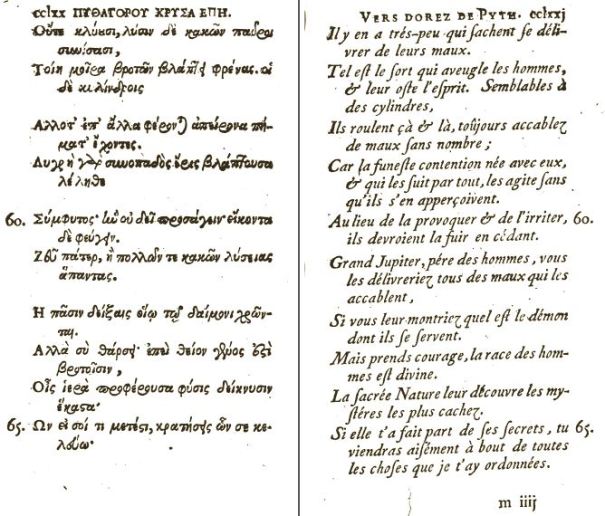 cclxx ΠΥΘΑΓΟΡΟΥ ΧΡΥΣΑ ΕΠΗ.
Οὔτε κλύουσι, λύσιν δὲ κακῶν παῦροι
συνίσασι,
Τοίη μοῖρα βροτῶν βλάπτει φρένας. οἱ
δὲ κυλίνδροις
Αλλοτ' ἐπ' ἄλλα φέρονται ἀπείρονα πή-
ματ' ἔχοντες.
Λυγρὴ γὰρ συνοπαδὸς ἔρις βλάπτουσα
λέληθε
60. Σύμφυτος· ἣν οὐ δεῖ προσάγειν· εἴκοντα
δὲ φεύγειν.
Ζεῦ πάτερ, ἢ πολλῶν τε κακῶν λύσειας
ἅπαντας.
Η πᾶσιν δείξαις οἵῳ τῷ δαίμονι χρῶν-
ται.
Αλλὰ σὺ θάρσει· ἐπεὶ θεῖον γένος ἐστὶ
βροτοῖσιν,
Οἷς ἱερὰ προφέρουσα φύσις δείκνυσιν
ἕκαστα·
65. Ων εἰ σοί τι μέτεστι, κρατήσεις ὧν σε κε-
λεύω·
VERS DOREZ DE PYTH. cclxxj
Il y en a trés-peu qui sachent se déli-
vrer de leurs maux.
Tel est le sort qui aveugle les hommes,
& leur oste l'esprit. Semblables à
des cylindres,
Ils roulent çà & là, toûjours accablez
de maux sans nombre ;
Car la funeste contention née avec eux,
& qui les suit par tout, les agite sans
qu'ils s'en apperçoivent.
Au lieu de la provoquer & de l'irriter, 60.
ils devroient la fuir en cédant.
Grand Jupiter, pére des hommes, vous
les délivreriez tous des maux qui les
accablent,
Si vous leur montriez quel est le démon
dont ils se servent.
Mais prends courage, la race des hom-
mes est divine.
La sacrée Nature leur découvre les my-
stéres les plus cachez.
Si elle t'a fait part de ses secrets, tu 65.
viendras aisément à bout de toutes
les choses que je t'ay ordonnées.
m iiij